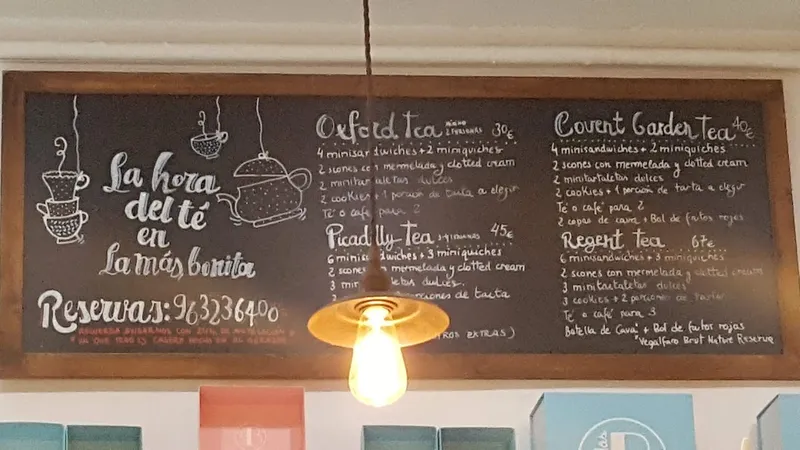 La hora
del té
en
La más bonita
Reservas: 963236400
Oxford Tea 2 PERSONAS 30€
4 minisandwiches + 2 miniquiches
2 scones con mermelada y clotted cream
2 minitartaletas dulces
2 cookies + 1 porción de tarta a elegir
Té o café para 2
Picadilly Tea 3-4 PERSONAS 45€
6 minisandwiches + 3 miniquiches
2 scones con mermelada y clotted cream
3 dulces
2 porciones de tarta
OTROS EXTRAS)
Covent Garden Tea 40€
4 minisandwiches + 2 miniquiches
2 scones con mermelada y clotted cream
2 minitartaletas dulces
2 cookies + 1 porción de tarta a elegir
Té o café para 2
2 copas de cava + Bol de frutos rojos
Regent Tea 67€
6 minisandwiches + 3 miniquiches
2 scones con mermelada y clotted cream
3 minitartaletas dulces
3 cookies + 2 porciones de tarta
Té o café para 3
Botella de Cava* + Bol de frutos rojas
*Vegalfaro Brut Nature Reserva